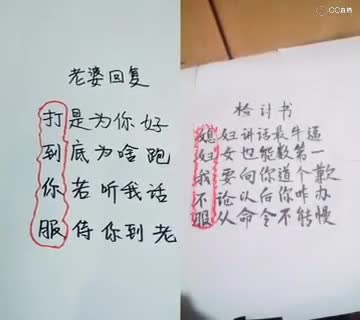 CC直播
老婆回复
打是为你好
到底为啥跑
你若听我话
服侍你到老
检讨书
媳妇讲话最牛逼
妇女也能数第一
我要向你道个歉
不论以后你咋办
服从命令不能慢